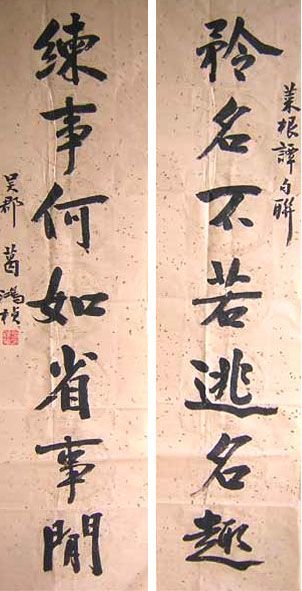 菜根譚句聯
矜名不若逃名趣
練事何如省事閒
吳郡 葛鴻楨